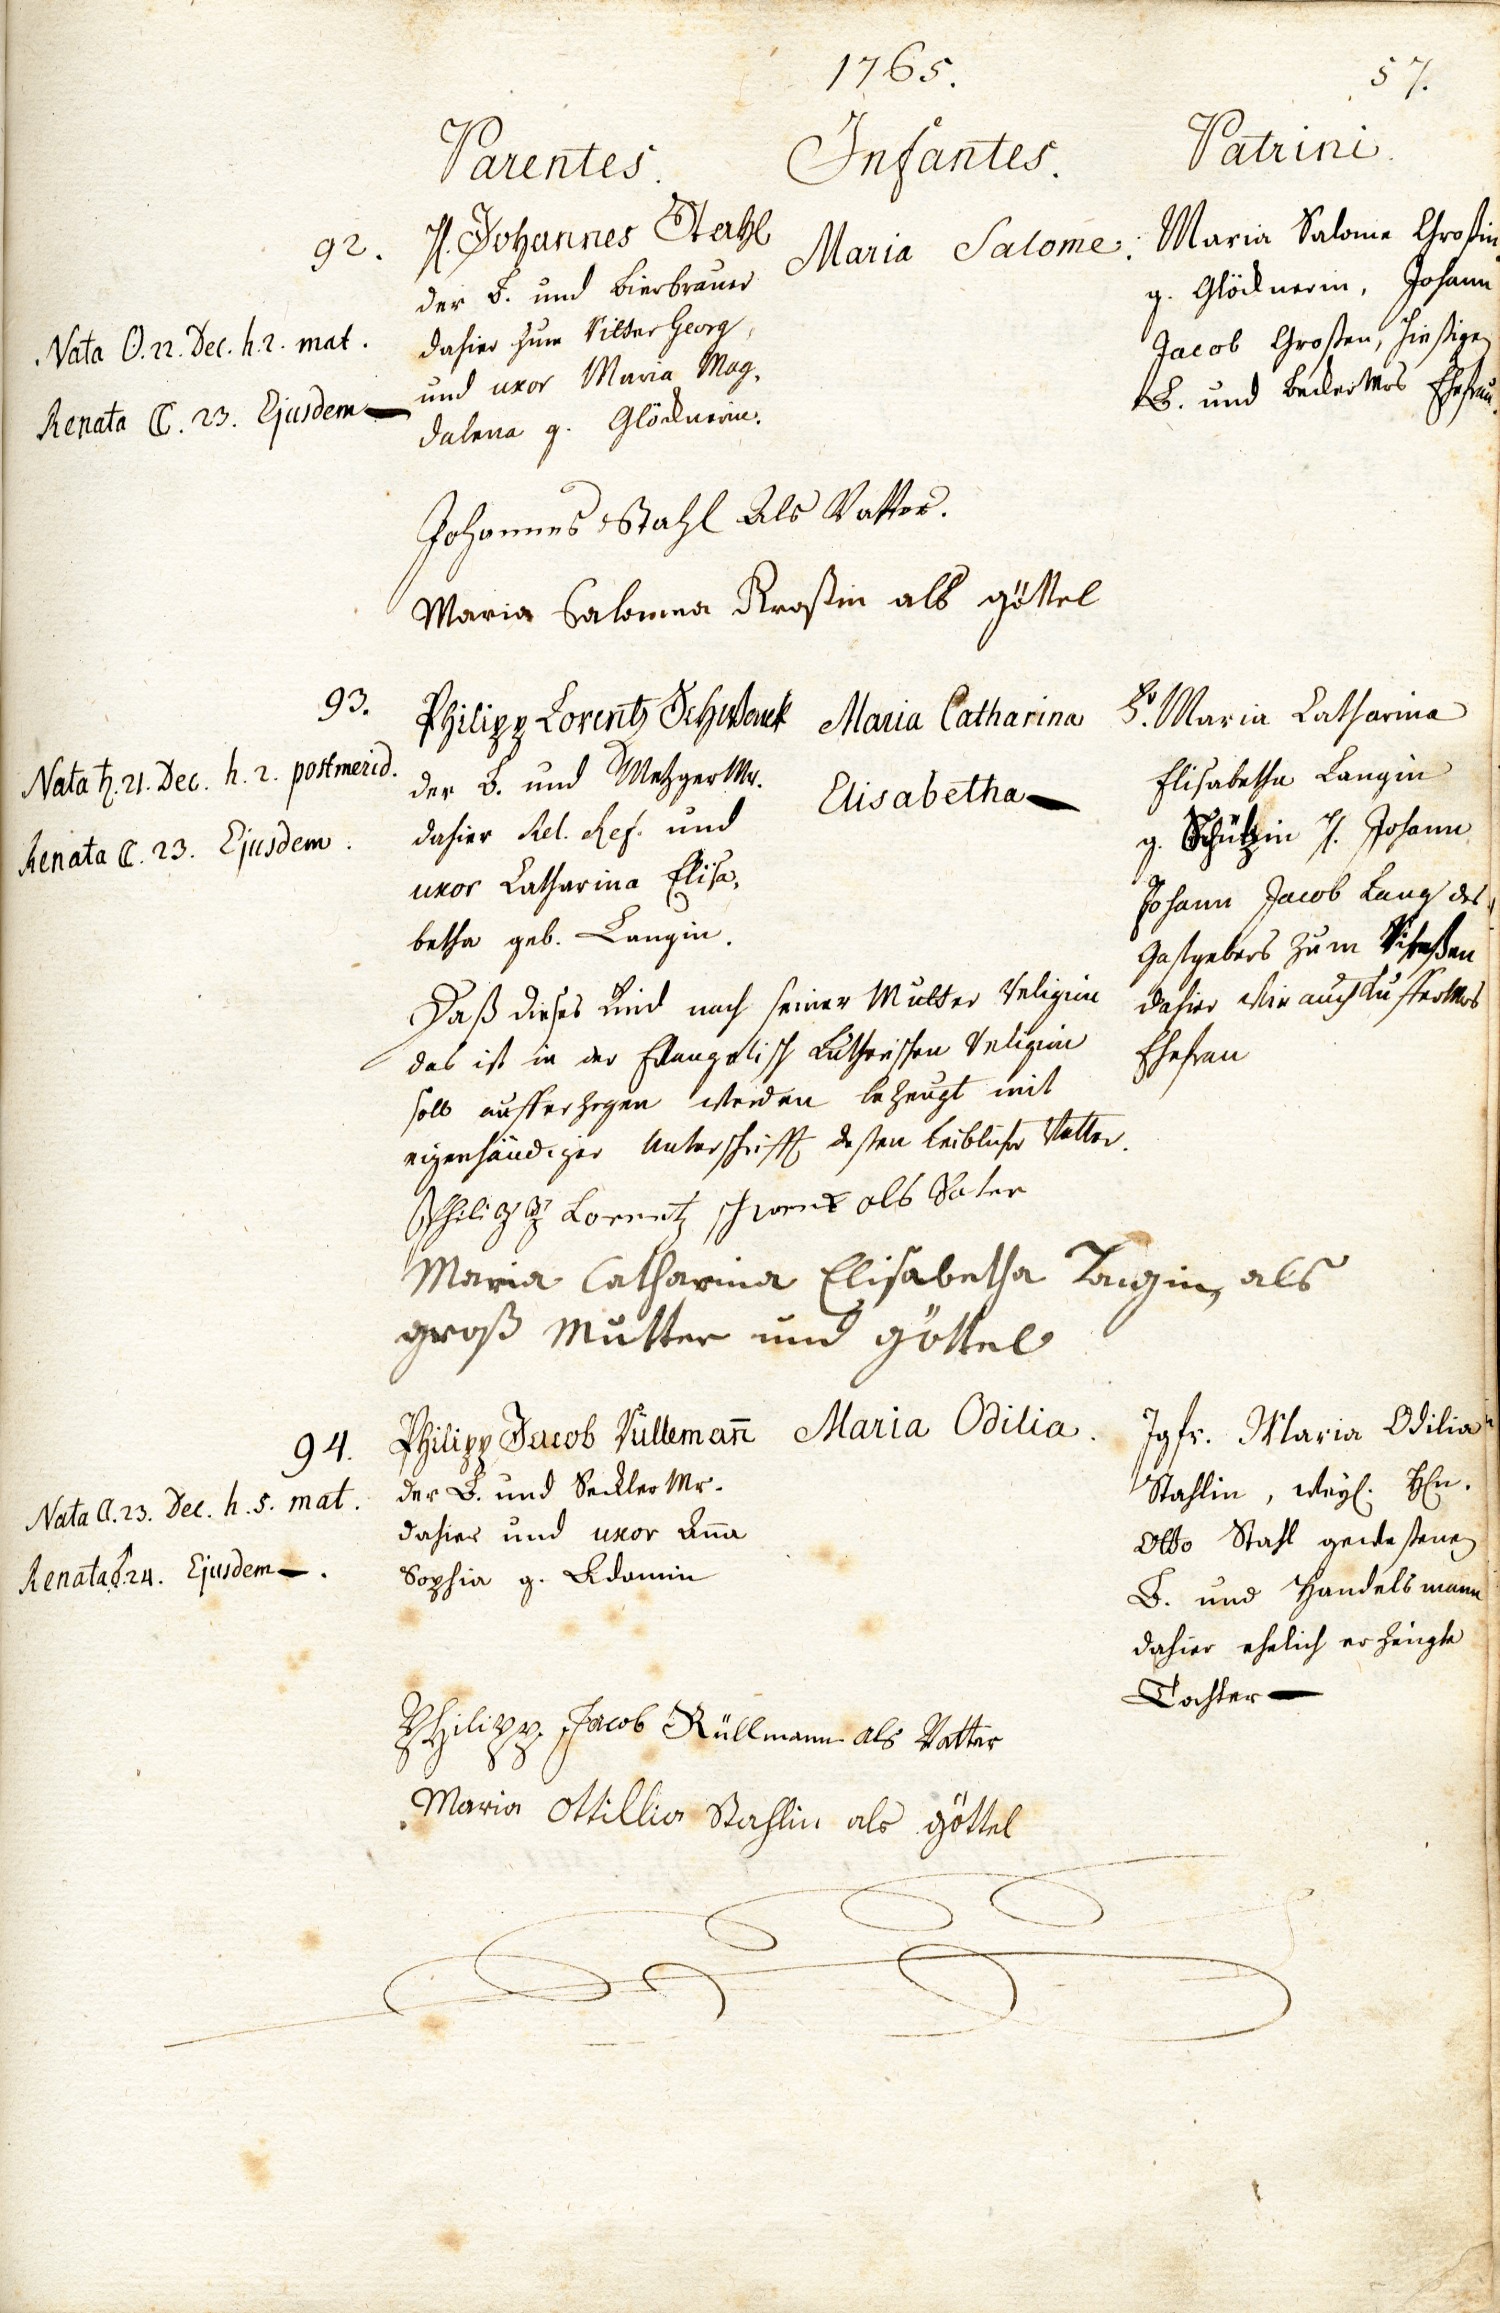 1765. 57.
Parentes. Infantes. Patrini.
92. H. Johannes Stahl
der B. und Bierbrauer
dahier zum Ritter Georg,
und uxor Maria Mag,
dalena g. Glöcknerin.
Nata ☉. 22. Dec. h. 2. mat.
Renata ☾. 23. Ejusdem
Maria Salome.
Maria Salome Großin
g. Glöcknerin, Johann
Jacob Großen, hießigen
B. und Beckermrs Ehefrau.
Johannes Stahl Als Vatter.
Maria Salomea Kroßin als göttel
93. Philipp Lorentz Schwenck
der B. und Metzger Mr.
dahier Rel. Ref. und
uxor Catharina Elisa,
betha geb. Langin.
Nata ♄. 21. Dec. h. 2. postmerid.
Renata ☾. 23. Ejusdem.
Maria Catharina
Elisabetha
Fr. Maria Catharina
Elisabetha Langin
g. Schützin H. Johann
Johann Jacob Lang des
Gastgebers zum
dahier wie auch Küffermrs
Ehefrau
Daß dieses Kind nach seiner Mutter Religion
das ist in der Evangelisch Lutherischen Religion
soll aufferzogen werden bezeugt mit
eigenhändiger Unterschrifft deßen leiblicher Vatter.
Philipp Lorentz schwenk als Vater
Maria Catharina Elisabetha Langin, als
groß Mutter und göttel
94. Philipp Jacob Rüllemañ
der B. und Seckler Mr.
dahier und uxor Aña
Sophia g. Adamin
Nata ☾. 23. Dec. h. 5. mat.
Renata ♂. 24. Ejusdem.
Maria Odilia.
Jgfr. Maria Odilia
Stahlin, weyl. Hn.
Otto Stahl geweßenen
B. und Handelsmann
dahier ehelich erzeugte
Tochter
Philipp Jacob Rüllmann als Vatter
Maria Ottillia Stahlin als göttel